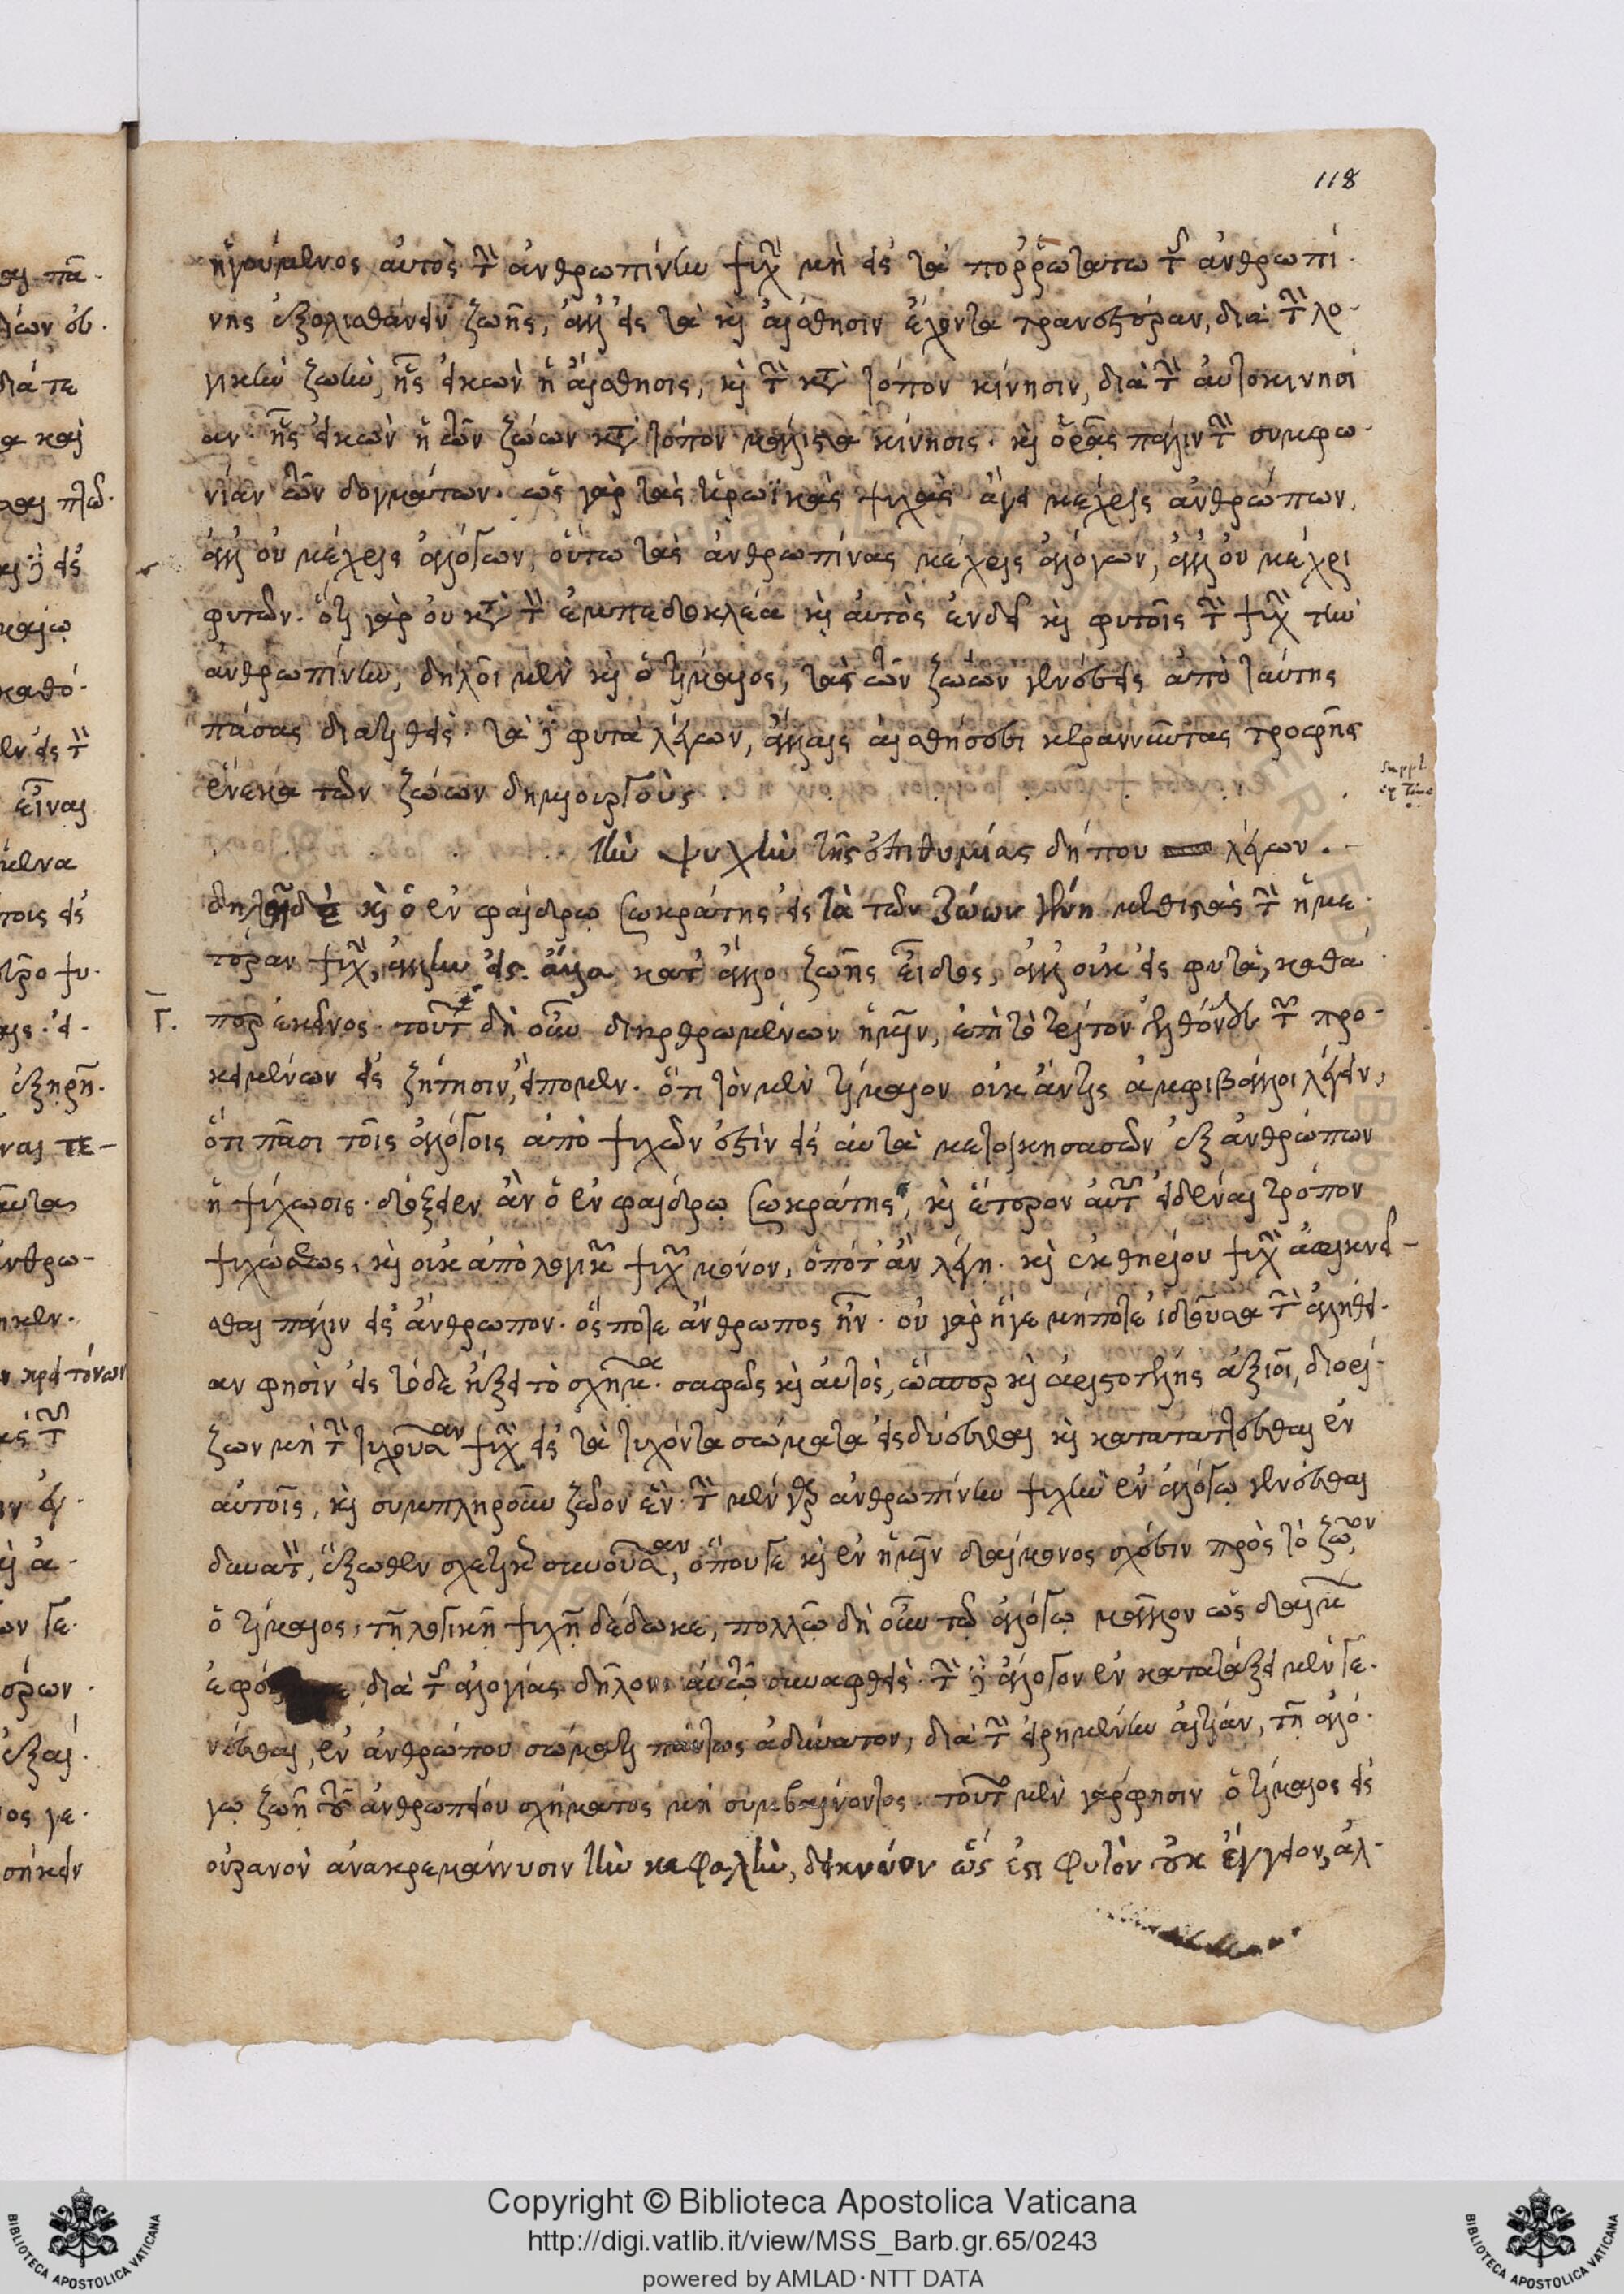 118
ἡγούμενος αὐτὸς τὴν ἀνθρωπίνην ψυχὴν μὴ εἰς τὰ πορρωτάτω τῆς ἀνθρωπί-
νης ἐξολισθάνειν ζωῆς, ἀλλ' εἰς τὰ καὶ αἴσθησιν ἔχοντα τρανεστέραν, διὰ τὴν λο-
γικὴν ζωὴν, ἧς εἰκὼν ἡ αἴσθησις, καὶ τὴν κατὰ τόπον κίνησιν, διὰ τὴν αὐτοκινησί
αν. ἧς εἰκὼν ἡ τῶν ζώων κατὰ τόπον μάλιστα κίνησις. καὶ ὁρᾷς πάλιν τὴν συμφω-
νίαν τῶν δογμάτων. ὡς γὰρ τὰς ἡρωϊκὰς ψυχὰς ἄγει μέχρις ἀνθρώπων,
ἀλλ' οὐ μέχρις ἀλόγων, οὕτω τὰς ἀνθρωπίνας μέχρις ἀλόγων, ἀλλ' οὐ μέχρι
φυτῶν. ὅτι γὰρ οὐ κατὰ τὸν ἐμπεδοκλέα καὶ αὐτὸς ἐνδεῖ καὶ φυτοῖς τὴν ψυχὴν τὴν
ἀνθρωπίνην, δηλοῖ μὲν καὶ ὁ τίμαιος, τὰς τῶν ζώων γενέσεις ἀπὸ ταύτης
πάσας διατιθεὶς. τὰ δὲ φυτὰ λέγων, ἄλλαις αἰσθήσεσι κεραννύντας τροφῆς
ἕνεκα τῶν ζώων δημιουργοὺς . . . . . . .
suppl.
ex Timæo
. . . . τὴν ψυχὴν τῆς ἐπιθυμίας δήπου λέγων. -
δηλοῖ δὲ καὶ ὁ ἐν φαίδρῳ Σωκράτης εἰς τὰ τῶν ζώων γένη μεθιστὰς τὴν ἡμε-
τέραν ψυχὴν, ἄλλην εἰς ἄλλα κατ' ἄλλο ζωῆς εἶδος, ἀλλ' οὐκ εἰς φυτὰ, καθά-
Γ.
περ ἐκεῖνος. τούτων δὴ οὖν διηρθρωμένων ἡμῖν, ἐπὶ τὸ τρίτον ἐλθόντες τῶν προ-
κειμένων εἰς ζήτησιν, εἴπομεν. ὅτι τὸν μὲν τίμαιον οὐκ ἄν τις ἀμφιβάλλοι λέγειν,
ὅτι πᾶσι τοῖς ἀλόγοις ἀπὸ ψυχῶν ἐστὶν εἰς αὐτὰ μετοικησασῶν ἐξ ἀνθρώπων
ἡ ψύχωσις. δόξειεν ἂν ὁ ἐν φαίδρῳ Σωκράτης, καὶ ἕτερον αὐτῶν εἰδέναι τρόπον
ψυχώσεως, καὶ οὐκ ἀπὸ λογικῆς ψυχῆς μόνον, ὁπότ' ἂν λέγῃ. καὶ ἐκ θηρίου ψυχὴν ἀφικνεῖ-
σθαι πάλιν εἰς ἄνθρωπον. ὅς ποτε ἄνθρωπος ἦν. οὐ γὰρ ἥγε μήποτε ἰδοῦσα τὴν ἀλήθει-
αν φησὶν εἰς τόδε ἥξει τὸ σχῆμα. σαφῶς καὶ αὐτὸς, ὥσπερ καὶ ἀριστοτέλης ἀξιοῖ, διορί-
ζων μὴ τὴν τυχοῦσαν ψυχὴν εἰς τὰ τυχόντα σώματα εἰσδύεσθαι καὶ κατατάττεσθαι ἐν
αὐτοῖς, καὶ συμπληροῦν ζῶον ἕν. τὴν μὲν γὰρ ἀνθρωπίνην ψυχὴν ἐν ἀλόγῳ γενέσθαι
δυνατὸν, ἔξωθεν σχετικῶς συνοῦσαν, ὅπου γε καὶ ἐν ἡμῖν δαίμονος σχέσιν πρὸς τὸ ζῶον,
ὁ τίμαιος, τῇ λογικῇ ψυχῇ δέδωκε, πολλῷ δὴ οὖν τῷ ἀλόγῳ μᾶλλον ὡς
διὰ τῆς ἀλογίας δῆλον. αὐτῷ συναφθεὶς. τὴν δὲ ἄλογον ἐν κατατάξει μὲν γε-
νέσθαι, ἐν ἀνθρώπου σώματι πάντως ἀδύνατον, διὰ τὴν εἰρημένην αἰτίαν, τῇ ἀλό-
γῳ ζωῇ τοῦ ἀνθρωπείου σχήματος μὴ συμβαίνοντος. τοῦτο μὲν γάρ φησιν ὁ τίμαιος εἰς
οὐρανὸν ἀνακρεμάννυσιν τὴν κεφαλὴν, δεικνύον ὥς ἐστι φυτὸν οὐκ ἔγγειον, ἀλ-
Copyright © Biblioteca Apostolica Vaticana
http://digi.vatlib.it/view/MSS_Barb.gr.65/0243
powered by AMLAD·NTT DATA
BIBLIOTECA APOSTOLICA VATICANA
BIBLIOTECA APOSTOLICA VATICANA